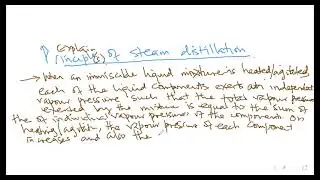 Explain
Principle(s) of steam distillation
→ When an immiscible liquid mixture is heated/agitated,
each of the liquid components exerts an independent
vapour pressure such that the total vapour pressure
exerted by the mixture is equal to the sum of
the of individual vapour pressures of the components. On
heating/agitatn, the vapour pressure of each component
increases and also the